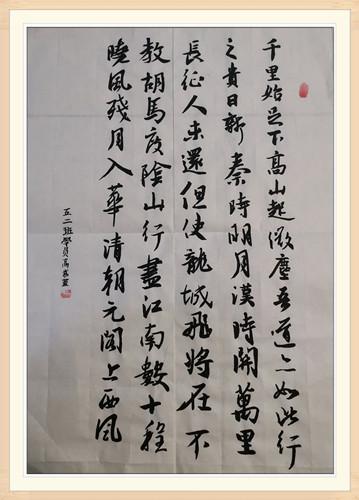 千里始足下高山起微塵吾道亦如此行
之貴日新秦時明月漢時関萬里
長征人未還但使龍城飛將在不
教胡馬度陰山行盡江南數十程
曉風殘月入華清朝元閣上西風
五二班學員高